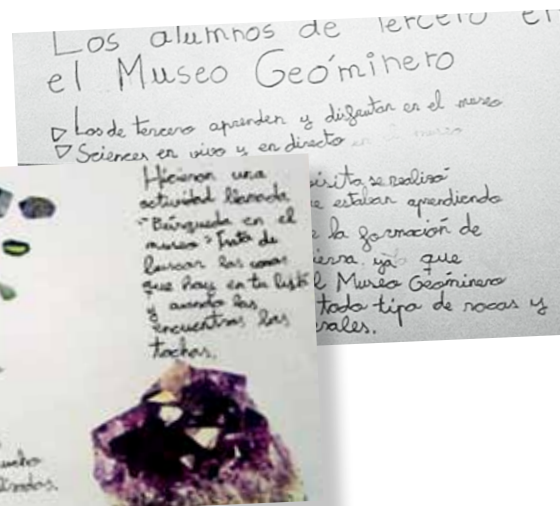 Los alumnos de Tercero en
el Museo Geóminero
Los de tercero aprenden y disfrutan en el museo
Sciences en vivo y en directo
visita se realisó
e estaban aprendiendo
e la formación de
ierra, ya que
l Museo Geóminero
todo tipo de rocas y
rales.
Hicieron una
actividad llamada
"Búsqueda en el
museo" Trata de
buscar las cosas
que hay en tu lista
y cuando las
encuentras las
tachas.
ucho